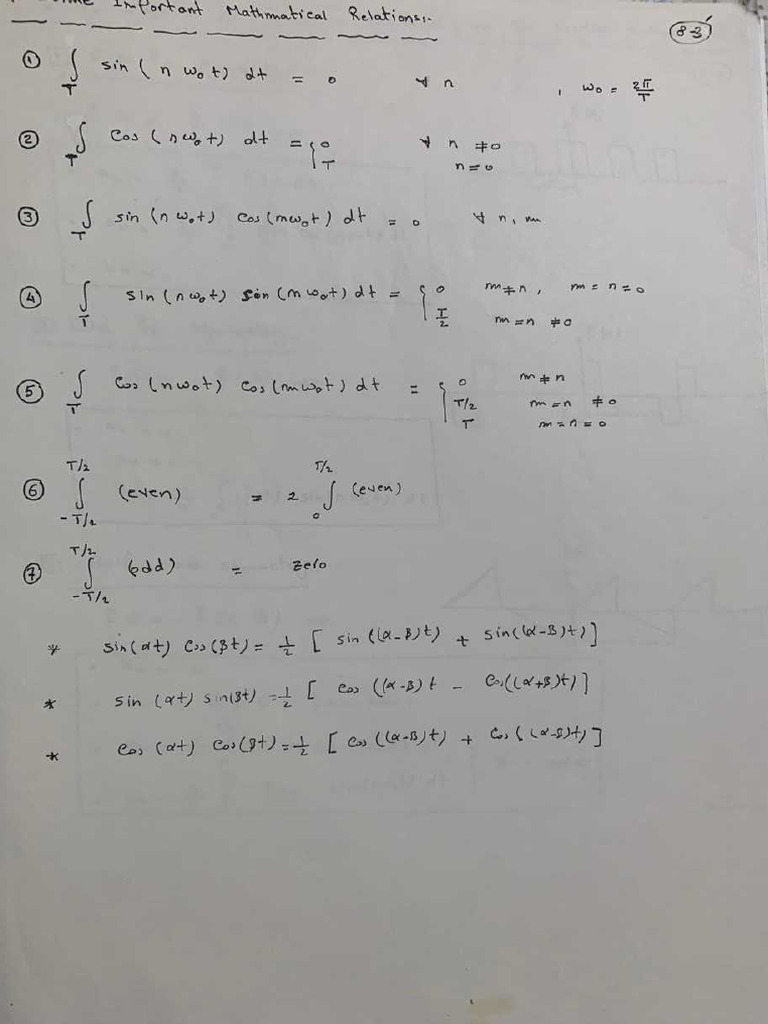 Important Mathmatical Relations:-
83
① ∫_T sin(n ω₀t) dt = 0 ∀ n , ω₀ = 2π/T
② ∫_T Cos(nω₀t) dt = { 0 ∀ n ≠0
T n=0
③ ∫_T sin(nω₀t) Cos(mω₀t) dt = 0 ∀ n, m
④ ∫_T sin(nω₀t) sin(mω₀t) dt = { 0 m≠n, m = n = 0
T/2 m=n ≠0
⑤ ∫_T Cos(nω₀t) Cos(mω₀t) dt = { 0 m≠n
T/2 m=n ≠0
T m=n=0
⑥ ∫_{-T/2}^{T/2} (even) = 2 ∫_0^{T/2} (even)
⑦ ∫_{-T/2}^{T/2} (odd) = Zero
* sin(αt) Cos(βt) = 1/2 [ sin((α-β)t) + sin((α-β)t)]
* sin(αt) sin(βt) = 1/2 [ Cos((α-β)t - Cos((α+β)t)]
* Cos(αt) Cos(βt) = 1/2 [ Cos((α-β)t) + Cos((α-β)t)]